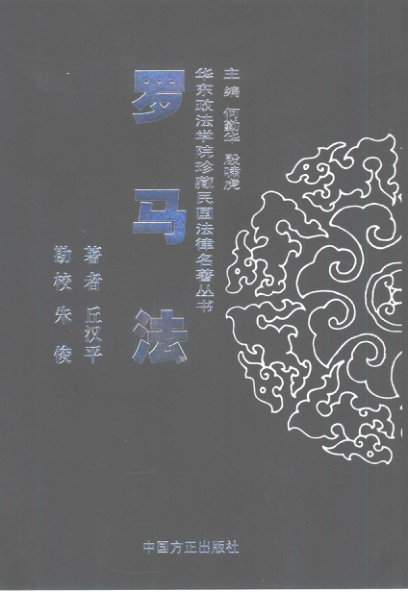 主编 何勤华 殷啸虎
华东政法学院珍藏民国法律名著丛书
罗马法
著者 丘汉平
勘校 朱俊
中国方正出版社